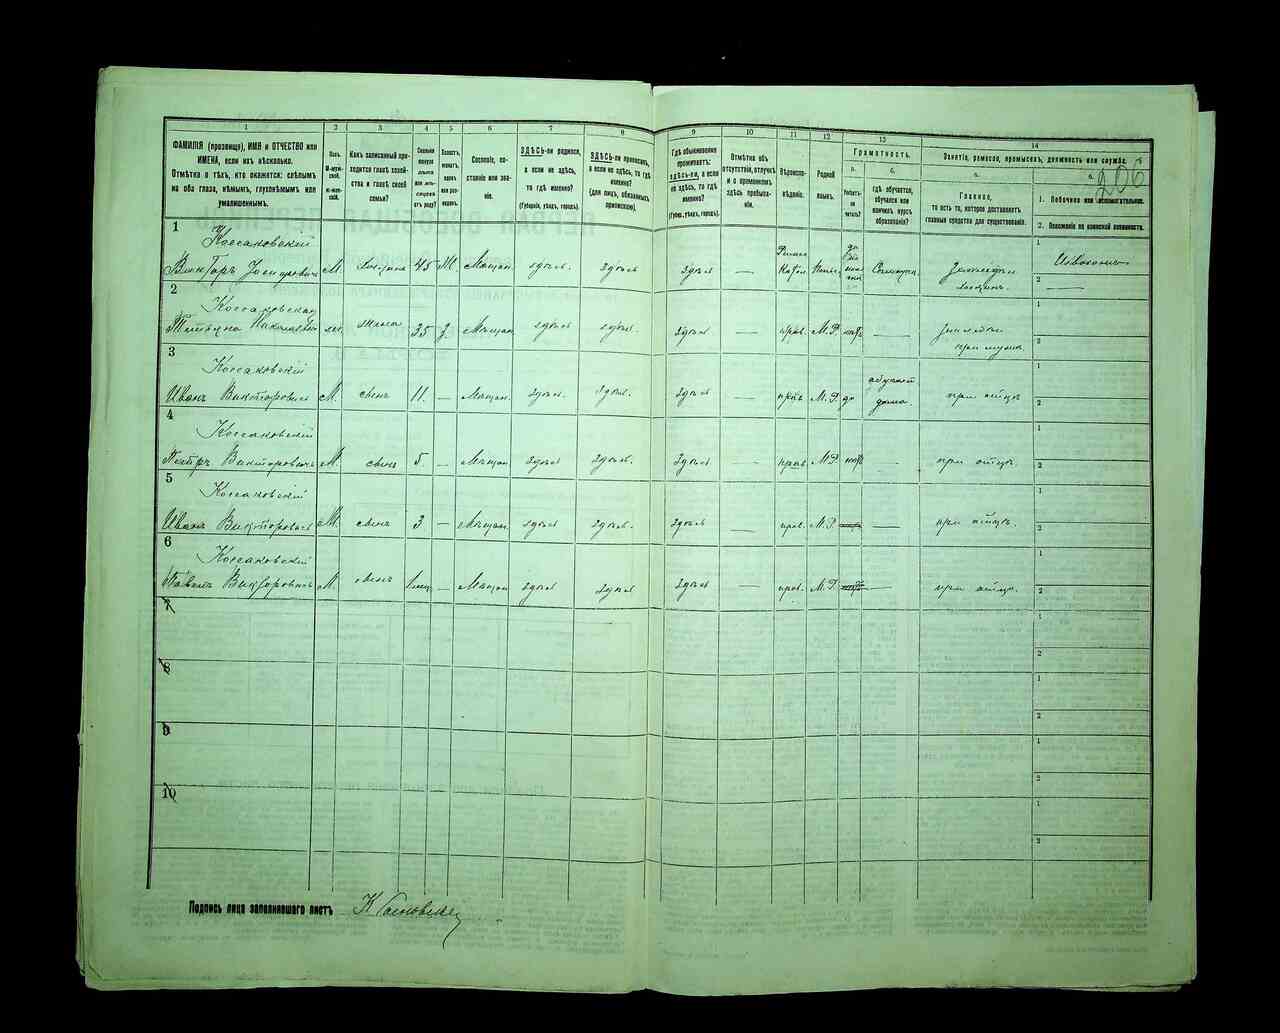 1 2 3 4 5 6 7 8 9 10 11 12 13 14
ФАМИЛІЯ (прозвище), ИМЯ и ОТЧЕСТВО или
ИМЕНА, если ихъ нѣсколько.
Отмѣтка о тѣхъ, кто окажется: слѣпымъ
на оба глаза, нѣмымъ, глухонѣмымъ или
умалишеннымъ.
Полъ.
М-муж-
ской.
Ж-жен-
скій.
Какъ записанный при-
ходится главѣ хозяй-
ства и главѣ своей
семьи?
Сколько
минуло
лѣтъ
или мѣ-
сяцевъ
отъ роду?
Холостъ,
женатъ,
вдовъ
или раз-
веденъ.
Сословіе, со-
стояніе или зва-
ніе.
ЗДѢСЬ-ли родился,
а если не здѣсь,
то гдѣ именно?
(Губернія, уѣздъ, городъ).
ЗДѢСЬ-ли приписанъ,
а если не здѣсь, то гдѣ
именно?
(для лицъ, обязанныхъ
припискою).
Гдѣ обыкновенно
проживаетъ:
здѣсь-ли, а если
не здѣсь, то гдѣ
именно?
(Губерн., уѣздъ, городъ).
Отмѣтка объ
отсутствіи, отлучкѣ
и о временномъ
здѣсь пребыва-
ніи.
Вѣроиспо-
вѣданіе.
Родной
языкъ.
Грамотность.
а.
Умѣетъ-
ли
читать?
б.
гдѣ обучается,
обучался или
кончилъ курсъ
образованія?
Занятіе, ремесло, промыселъ, должность или служба.
а.
Главное,
то есть то, которое доставляетъ
главныя средства для существованія.
б.
206
1. Побочное или вспомогательное.
2. Положеніе по воинской повинности.
1
Коссаковскій
Викторъ Іосифовичъ М. 45 Ж. Мѣщан. здѣсь. здѣсь здѣсь —
2
Коссаковская
Татьяна Николаевна ж. жена 35 З. Мѣщан здѣсь здѣсь. здѣсь — прав. М. Р. —
3
Коссаковскій
Иванъ Викторовичъ М. сынъ 11. — Мѣщан. здѣсь. здѣсь. здѣсь — прав М. Р. да дома. при отцѣ
4
Коссаковскій
Петръ Викторовичъ М. сынъ 5. — Мѣщан здѣсь здѣсь. здѣсь — прав. М. Р. — при отцѣ
5
Коссаковскій
Иванъ Викторовичъ М. сынъ 3 — Мѣщан. здѣсь здѣсь. здѣсь — прав. М. Р. — при отцѣ.
6
Коссаковскій
Павелъ Викторовичъ М. сынъ — Мѣщан здѣсь здѣсь здѣсь — прав. М. Р. — при отцѣ.
7
8
9
10
Подпись лица заполнившаго листъ